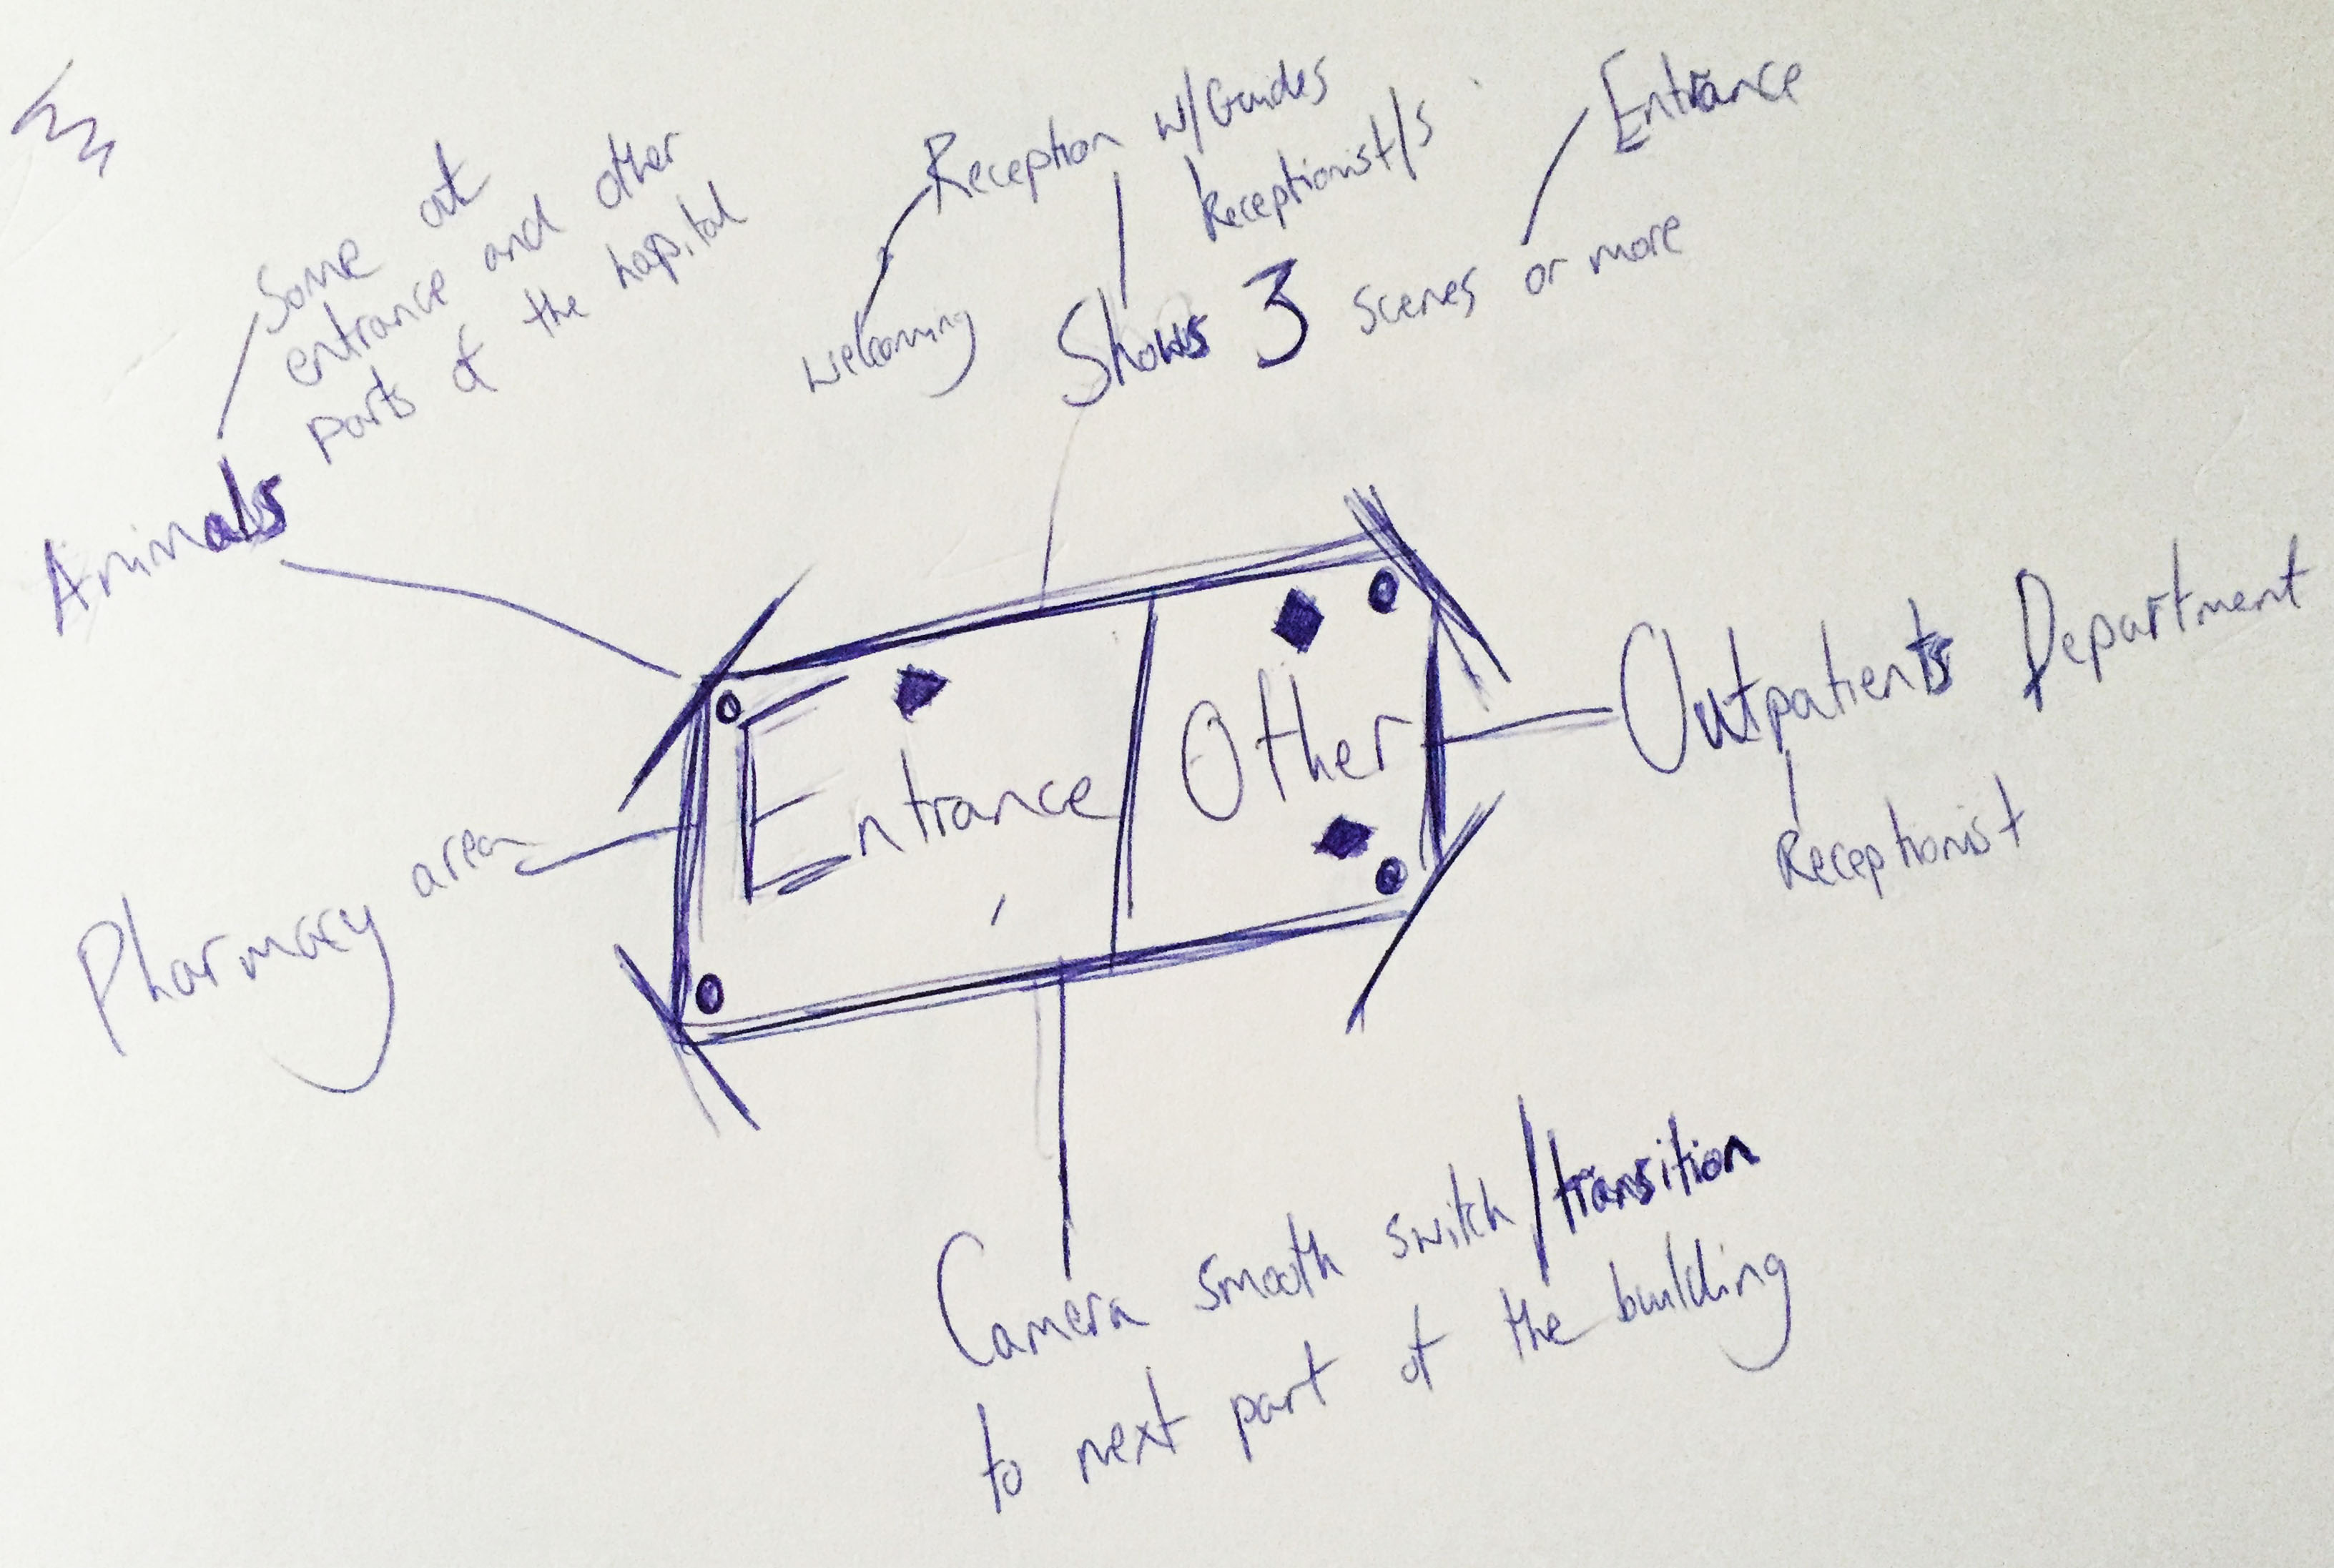 Reception w/Guides
Receptionist/s
Entrance
welcoming
Shows 3 scenes or more
Some at
entrance and other
parts of the hospital
Animals
Entrance
Other
Outpatients Department
Receptionist
Pharmacy area
Camera smooth switch/transition
to next part of the building